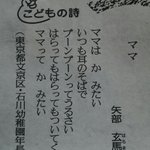 こどもの詩
ママ
矢部 玄馬
ママは か みたい
いつも耳のそばで
プーンプーンってうるさい
はらってもはらってもついてく
ママって か みたい
(東京都文京区・石川幼稚園年長